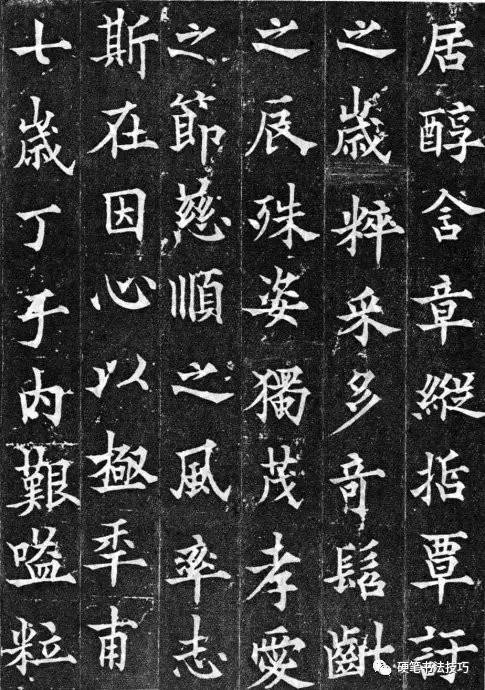 居醇含章縱哲覃訏
之歲粹采多奇髫齔
之辰殊姿獨茂孝愛
之節慈順之風率志
斯在因心以極年甫
七歲丁于内艱嗌粒
硬笔书法技巧